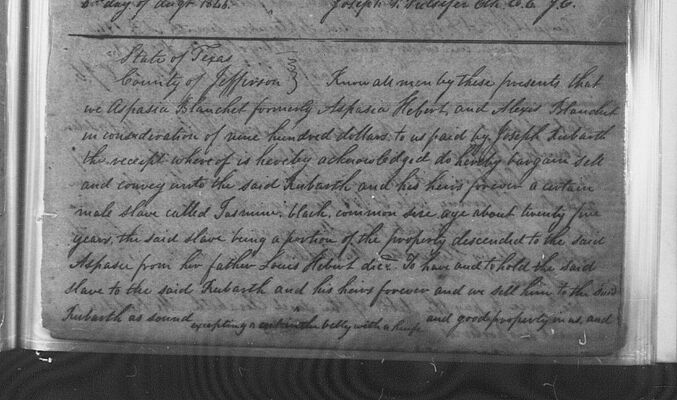 6th day of Augt 1846. Joseph P. Pulsifer Clk C.C. J.C.
State of Texas
County of Jefferson Know all men by these presents that
we Aspasia Blanchet formerly Aspasia Hebert, and Alexis Blanchet
in consideration of nine hundred dollars to us paid by Joseph Rubarth
the receipt whereof is hereby acknowledged do hereby bargain sell
and convey unto the said Rubarth and his heirs forever a certain
male slave called Jasmine, black, common size, age about twenty five
years, the said slave being a portion of the property descended to the said
Aspasia from her father Louis Hebert decd. To have and to hold the said
slave to the said Rubarth and his heirs forever and we sell him to the said
Rubarth as sound excepting a cut in the belly with a knife and good property in us, and